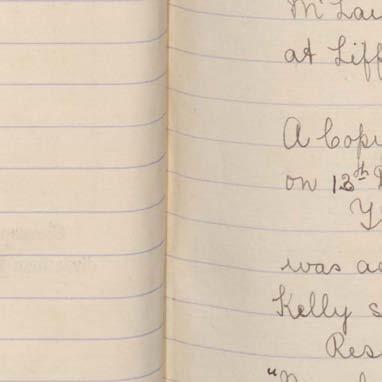 Mc Lau
at Liff
A Copi
on 13th
was ac
Kelly s
Res